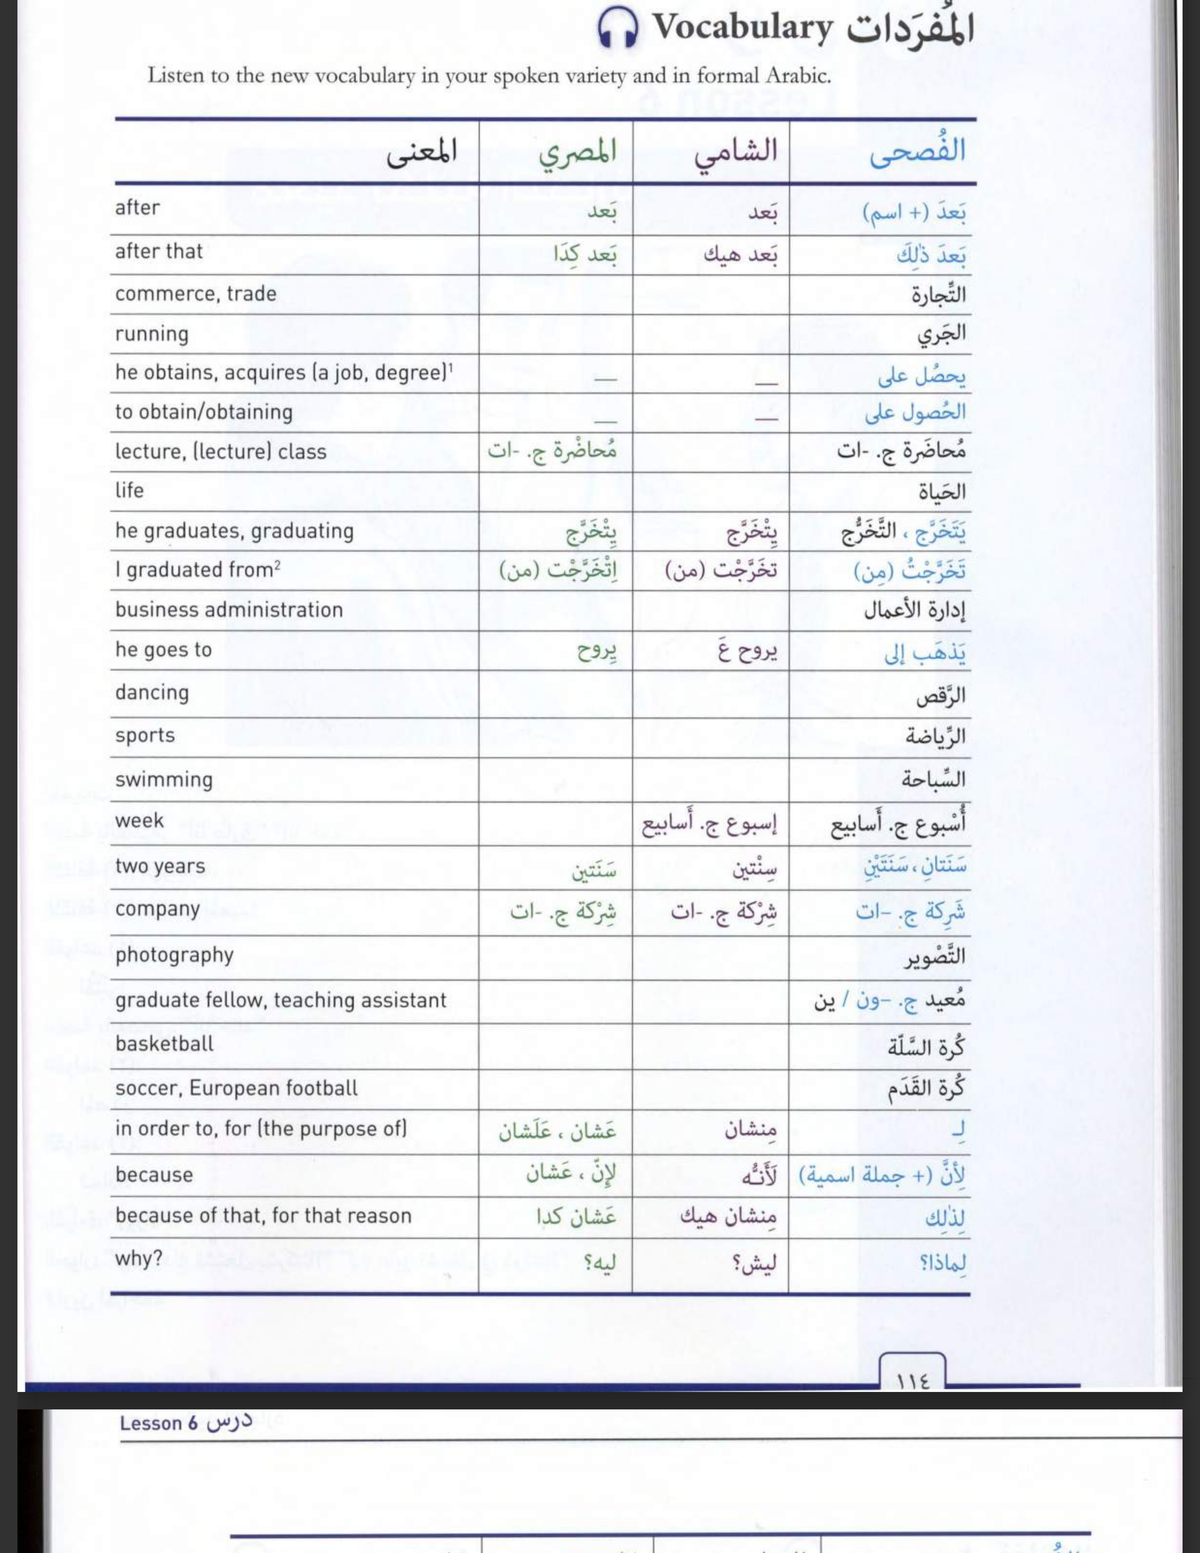 Vocabulary المُفرَدات
Listen to the new vocabulary in your spoken variety and in formal Arabic.
المعنى المصري الشامي الفُصحى
after بَعد بَعد بَعدَ (+ اسم)
after that بَعد كِدَا بَعد هيك بَعدَ ذٰلِكَ
commerce, trade التِّجارة
running الجَري
he obtains, acquires (a job, degree)¹ — — يحصُل على
to obtain/obtaining — — الحُصول على
lecture, (lecture) class مُحاضْرة ج. -ات مُحاضَرة ج. -ات
life الحَياة
he graduates, graduating يِتْخَرَّج يِتْخَرَّج يَتَخَرَّج ، التَّخَرُّج
I graduated from² اِتْخَرَّجْت (من) تخَرَّجْت (من) تَخَرَّجْتُ (مِن)
business administration إدارة الأعمال
he goes to يِروح يروح عَ يَذهَب إلى
dancing الرَّقص
sports الرِّياضة
swimming السِّباحة
week إسبوع ج. أَسابيع أُسْبوع ج. أَسابيع
two years سَنَتين سِنْتين سَنَتانِ ، سَنَتَيْنِ
company شِرْكة ج. -ات شِرْكة ج. -ات شَرِكة ج. -ات
photography التَّصْوير
graduate fellow, teaching assistant مُعيد ج. -ون / ين
basketball كُرة السَّلّة
soccer, European football كُرة القَدَم
in order to, for (the purpose of) عَشان ، عَلَشان مِنشان لِـ
because لِإنّ ، عَشان لَأَنُّه لِأنَّ (+ جملة اسمية)
because of that, for that reason عَشان كدا مِنشان هيك لِذٰلِك
why? ليه؟ ليش؟ لِماذا؟
١١٤
Lesson 6 درس